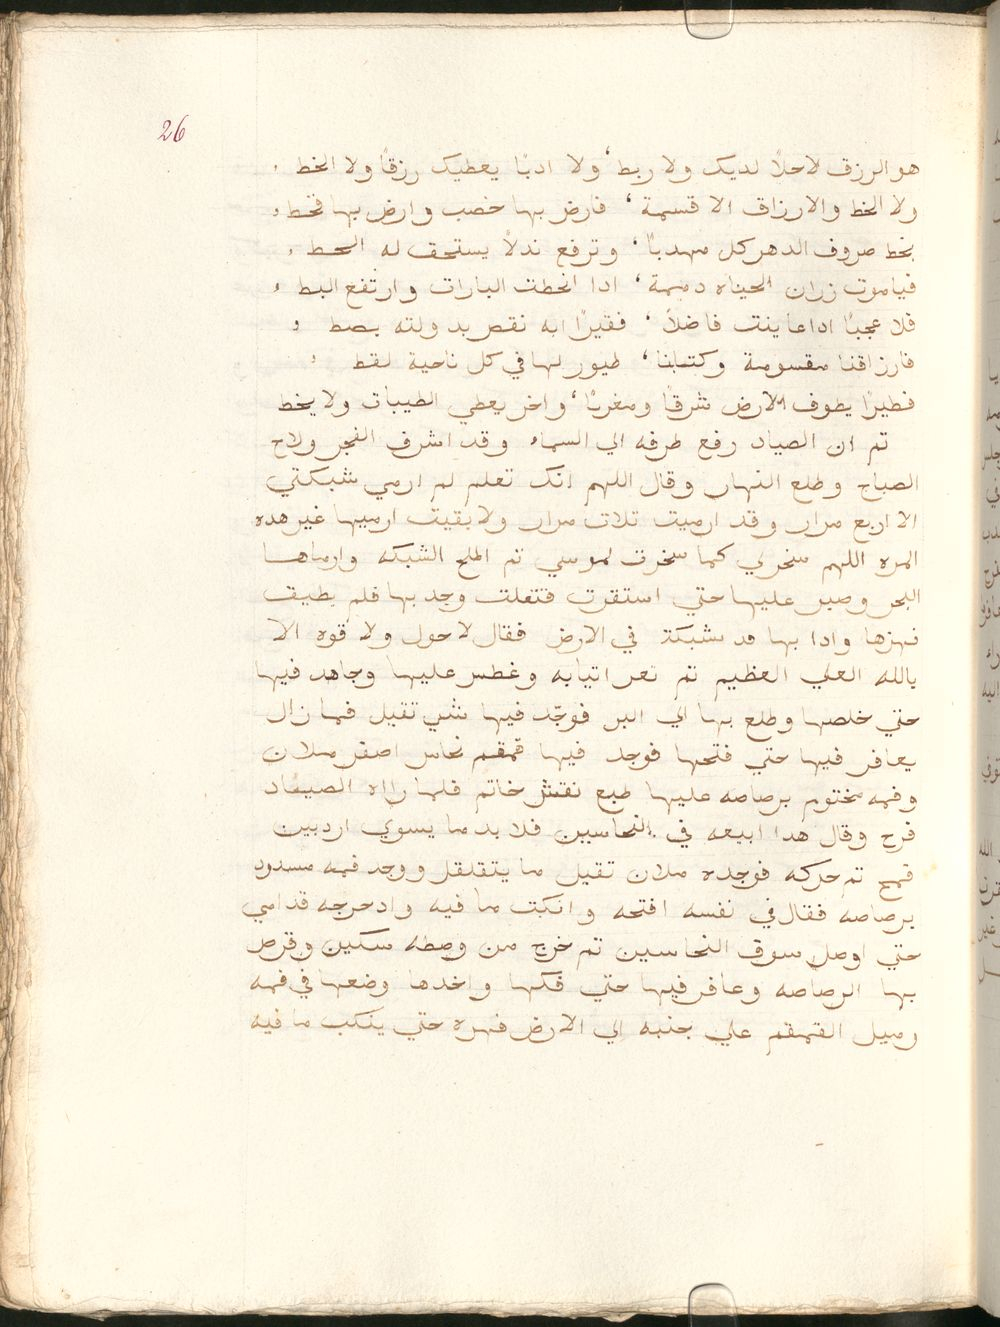 26
هو الرزق لا حلاً لديك ولا ربط ، ولا ادبًا يعطيك رزقًا ولا الخط ،
ولا الخط والارزاق الا قسمة ، فارض بها خصب وارض بها قحط ،
بخط صروف الدهر كل مهدبًا ، وترفع ندلاً يستحق له الحط ،
فياموت زران الحياه دميمة ، ادا انحطت البازات وارتفع البط ،
فلا عجبًا اداعاينت فاضلاً ، فقيرًا ابه نقص بدولته بصط ،
فارزاقنا مقسومة وكتابنا ، طيور لها في كل ناحية لقط ،
فطيرًا يطوف الارض شرقًا ومغربًا ، واخر يعطي الطيبات ولا يخط
تم ان الصياد رفع طرفه الي السماء وقد اشرف الفجر ولاح
الصباح وطلع النهار وقال اللهم انك تعلم لم ارمي شبكتي
الا اربع مرار وقد ارميت تلات مرار ولا بقيت ارميها غير هده
المره اللهم سخر لي كما سخرت لموسي تم اطلح الشبكه وارماها
البحر وصبر عليها حتي استقرت فتقلت وجد بها فلم يطيق
نهزها وادا بها مد شبكة في الارض فقال لا حول ولا قوه الا
بالله العلي العظيم تم تعر اتيابه وغطس عليها وجاهد فيها
حتي خلصها وطلع بها الي البر فوجّد فيها شي تقيل فما زال
يعافر فيها حتي فتحها فوجد فيها قمقم نحاس اصفر ملان
وفمه مختوم برصاصه عليها طبع نقش خاتم فلما رااه الصيياد
فرح وقال هدا ابيعه في النحاسين فلا بد ما يسوي اردبين
قمح تم حركه فوجده ملان تقيل ما يتقلقل ووجد فمه مسدود
برصاصه فقال في نفسه افتحه وانكت ما فيه وادحرجه قدامي
حتي اوصل سوق النحاسين تم خرج من وصطه سكين وقرص
بها الرصاصه وعافر فيها حتي فكها واخدها وضعها في فمه
وميل القمقم علي جنبه الي الارض فهره حتي ينكب ما فيه